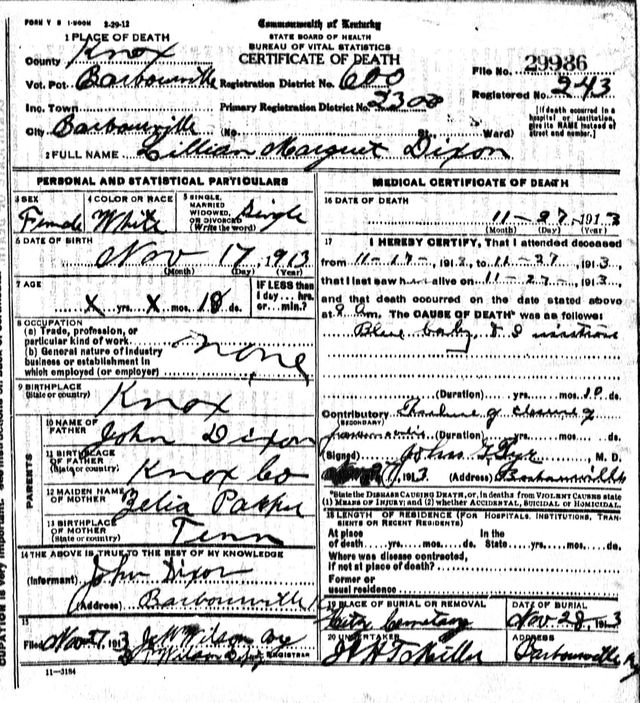 FORM V S 1-500M 2-29-12
Commonwealth of Kentucky
STATE BOARD OF HEALTH
BUREAU OF VITAL STATISTICS
CERTIFICATE OF DEATH
1 PLACE OF DEATH
County Knox
Vot. Pct. Barbourville
Inc. Town
City Barbourville (No. St., Ward)
Registration District No. 600
Primary Registration District No. 2300
File No. 29936
Registered No. 243
[If death occurred in a hospital or institution, give its NAME instead of street and number.]
2 FULL NAME Lillian Marguet Dixon
PERSONAL AND STATISTICAL PARTICULARS
3 SEX Female
4 COLOR OR RACE White
5 SINGLE, MARRIED WIDOWED, OR DIVORCED (Write the word) Single
6 DATE OF BIRTH Nov 17, 1913
(Month) (Day) (Year)
7 AGE x yrs. x mos. 10 ds.
IF LESS than 1 day... hrs. or... min.?
8 OCCUPATION
(a) Trade, profession, or particular kind of work
(b) General nature of industry business or establishment in which employed (or employer)
none
9 BIRTHPLACE (State or country) Knox
PARENTS
10 NAME OF FATHER John Dixon
11 BIRTHPLACE OF FATHER (State or country) Knox Co
12 MAIDEN NAME OF MOTHER Zelia Parker
13 BIRTHPLACE OF MOTHER (State or country) Tenn
14 THE ABOVE IS TRUE TO THE BEST OF MY KNOWLEDGE
(Informant) John Dixon
(Address) Barbourville
15
Filed Nov 27, 1913 J W Wilson
Wilson Depty REGISTRAR
11-3184
MEDICAL CERTIFICATE OF DEATH
16 DATE OF DEATH
11 - 27, 1913
(Month) (Day) (Year)
17 I HEREBY CERTIFY, That I attended deceased
from 11-17-, 1913, to 11-27, 1913,
that I last saw h alive on 11-27, 1913,
and that death occurred on the date stated above
at 8 am. The CAUSE OF DEATH* was as follows:
Blue baby
(Duration) yrs. mos. 10 ds.
Contributory of closure of
(SECONDARY)
(Duration) yrs. mos. ds.
(Signed) M. D.
27, 1913 (Address) Barbourville
*State the DISEASE CAUSING DEATH, or, in deaths from VIOLENT CAUSES state (1) MEANS OF INJURY; and (2) whether ACCIDENTAL, SUICIDAL or HOMICIDAL.
18 LENGTH OF RESIDENCE (FOR HOSPITALS, INSTITUTIONS, TRANSIENTS OR RECENT RESIDENTS)
At place of death yrs. mos. ds. In the State yrs. mos. ds.
Where was disease contracted, if not at place of death?
Former or usual residence
19 PLACE OF BURIAL OR REMOVAL
City Cemetary
DATE OF BURIAL
Nov 28, 1913
20 UNDERTAKER
ADDRESS
Barbourville Ky